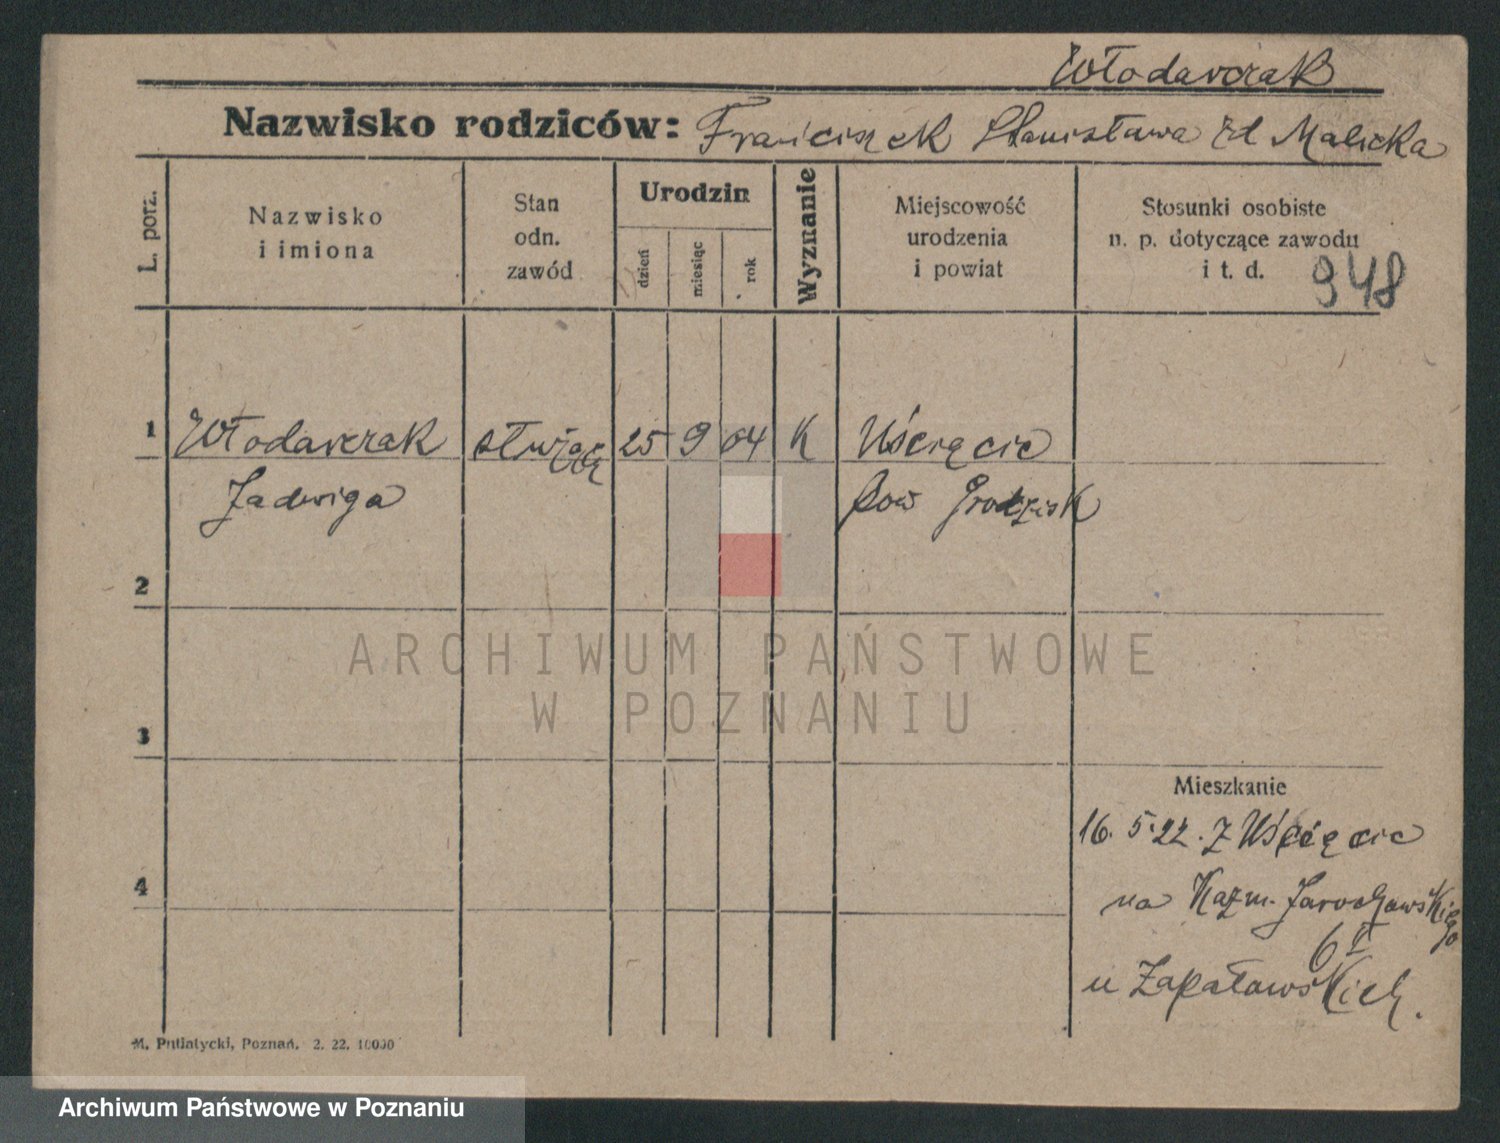 Włodarczak
Nazwisko rodziców: Franciszek Stanisława zd Malicka
L. porz.
Nazwisko
i imiona
Stan
odn.
zawód
Urodzin
dzień
miesiąc
rok
Wyznanie
Miejscowość
urodzenia
i powiat
Stosunki osobiste
n. p. dotyczące zawodu
i t. d.
948
1 Włodarczak służąca 25 9 04 K Uścięcie
Jadwiga pow Grodzisk
2
3
4
Mieszkanie
16. 5.22. z Uścięcie
na Kazm. Jarochowskiego
6 I
u Zapałowskich.
M. Putiatycki, Poznań, 2. 22. 10000
ARCHIWUM PAŃSTWOWE
W POZNANIU
Archiwum Państwowe w Poznaniu